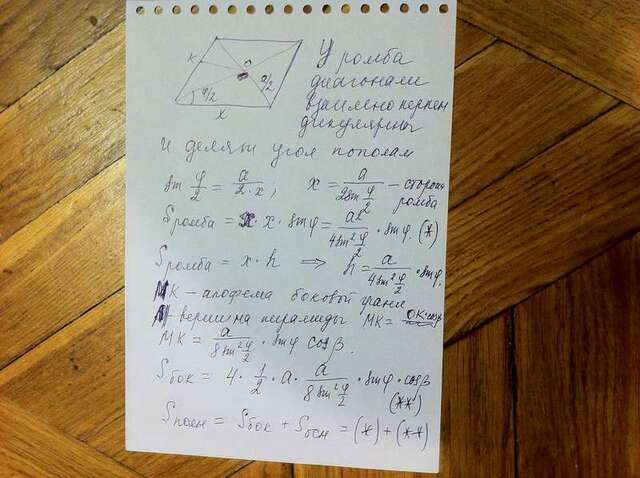 K
O
φ/2
a/2
x
У ромба
диагонали
взаимно перпен
дикулярны
и делят угол пополам
sin φ/2 = a/(2·x), x = a/(2 sin φ/2) – сторона
ромба
Sромба = x·x·sin φ = a²/(4 sin² φ/2) · sin φ. (*)
Sромба = x·h ⇒ h = a/(4 sin² φ/2) · sin φ.
МК – апофема боковой грани
М вершина пирамиды МК = ОК·cos β
МК = a/(8 sin² φ/2) · sin φ cos β.
Sбок = 4 · 1/2 · a · a/(8 sin² φ/2) · sin φ · cos β
(**)
Sполн = Sбок + Sосн = (*) + (**)